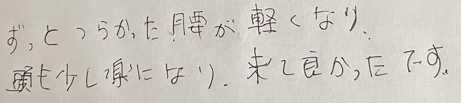 ずっとつらかった腰が軽くなり、
頭も少し楽になり、来て良かったです。